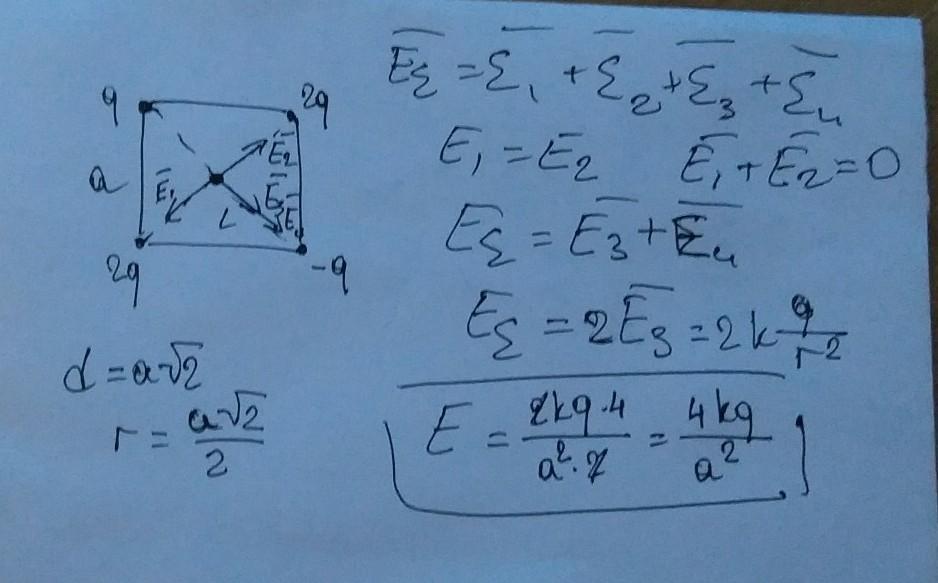 q 2q
a
E₁ E₂ E₃ E₄
L
2q -q
d = a√2
r = a√2/2
E̅ξ = ξ̅₁ + ξ̅₂ + ξ̅₃ + ξ̅₄
E₁ = E₂ E̅₁ + E̅₂ = 0
E̅ξ = E̅₃ + E̅₄
E̅ξ = 2E̅₃ = 2k q/r²
E = 2kq·4/a²·2 = 4kq/a²